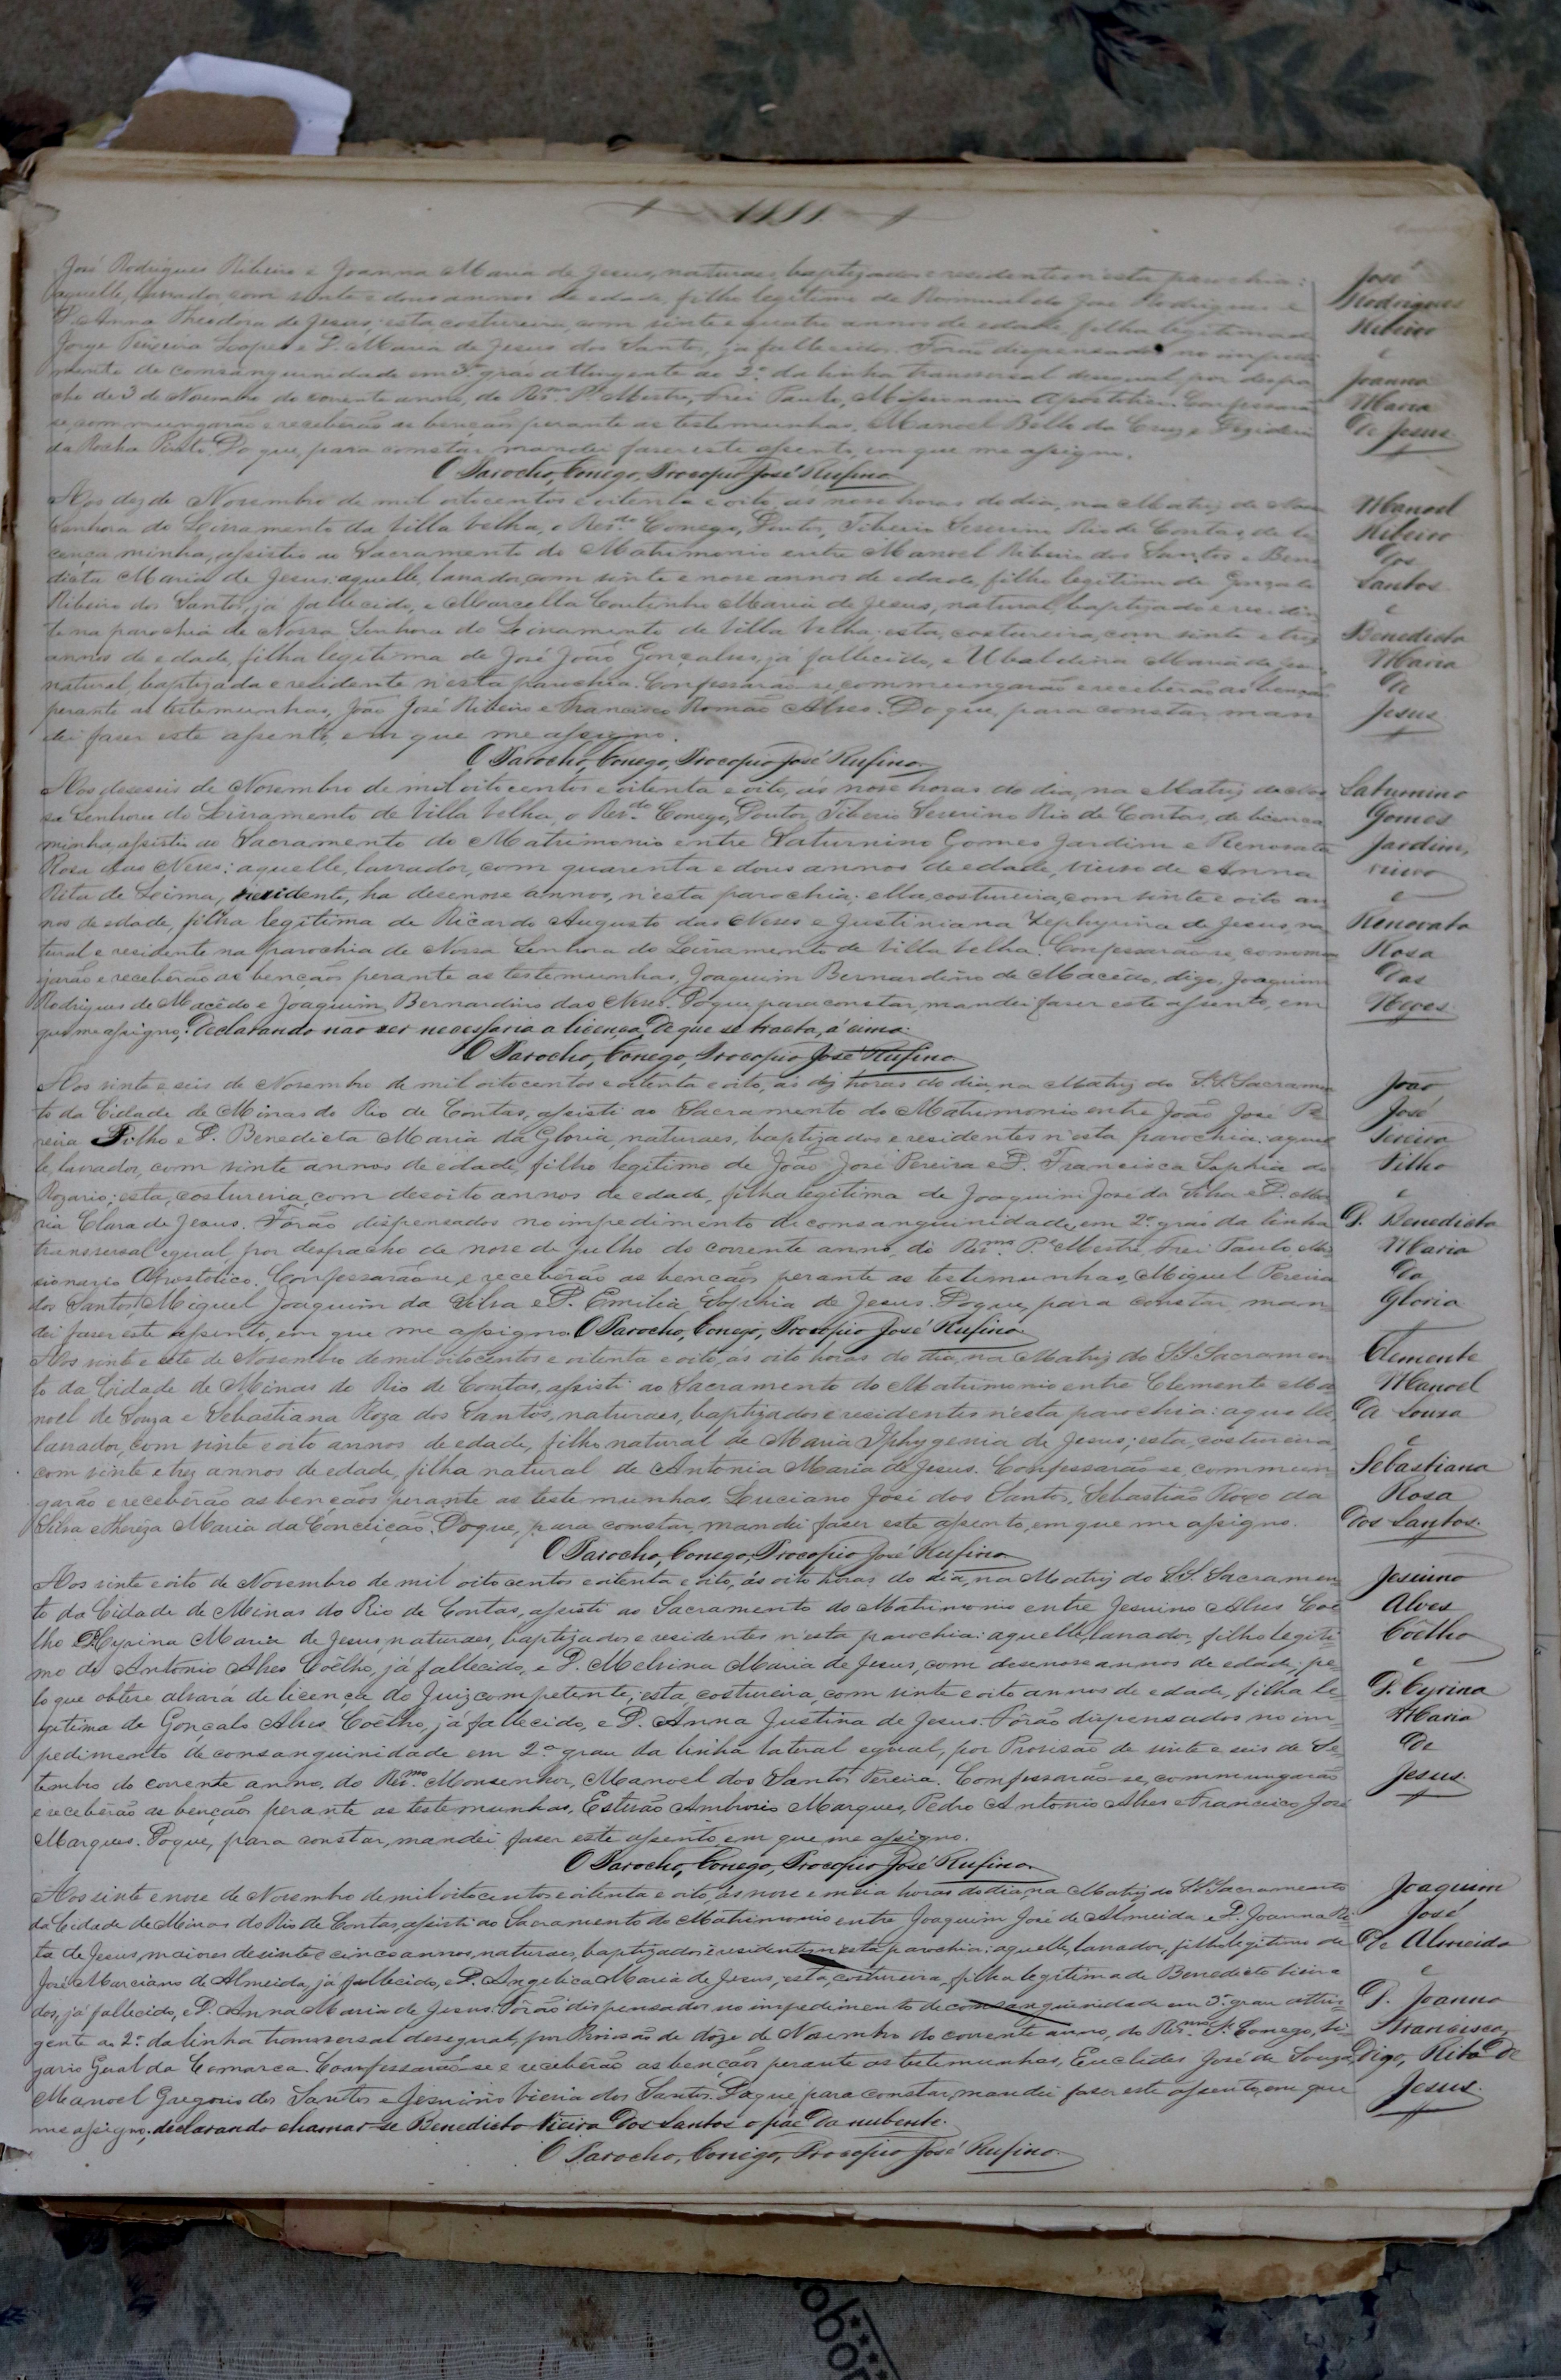 1888.
José Rodrigues Ribeiro e Joanna Maria de Jesus, naturaes, baptizados e residentes n'esta parochia:
aquelle, lavrador, com vinte e dous annos de edade, filho legitimo de Romualdo José Rodrigues e
D. Anna Theodora de Jesus; esta, costureira, com vinte e quatro annos de edade, filha legitima de
Jorge Teixeira Lopes e D. Maria de Jesus dos Santos, já fallecidos. Forão dispensados no impedi
mento de consanguinidade em 3º grao attingente ao 2º da linha transversal desigual, por despa
cho de 3 de Novembro do corrente anno, do Resmo. Pe. Mestre, Frei Paulo, Missionario Apostolico. Confessarão
se, commungarão e receberão as bençãos perante as testemunhas, Manoel Bello da Cruz e
da Rocha Pinto. Do que, para constar, mandei faser este assento, em que me assigno.
O Parocho, Conego, Procopio José Rufino
Aos dez de Novembro de mil oitocentos e oitenta e oito, ás nove horas do dia, na Matriz de Nossa
Senhora do Livramento da Villa Velha, o Revdo. Conego, Doutor, Tiberio Severino Rio de Contas, de li
cença minha, assistio ao Sacramento do Matrimonio entre Manoel Ribeiro dos Santos e Bene
dicta Maria de Jesus: aquelle, lavrador, com vinte e nove annos de edade, filho legitimo de Gonçalo
Ribeiro dos Santos, já fallecido, e Marcella Coutinho Maria de Jesus, natural, baptizado e residen
te na parochia de Nossa Senhora do Livramento de Villa Velha; esta, costureira, com vinte e trez
annos de edade, filha legitima de José João Gonçalves, já fallecido, e Ubaldina Maria de Jesus,
natural, baptizada e residente n'esta parochia. Confessarão-se, commungarão e receberão as bençãos
perante as testemunhas, João José Ribeiro e Francisco Romão Alves. Do que, para constar, man
dei faser este assento, em que me assigno.
O Parocho, Conego, Procopio José Rufino
Aos deseseis de Novembro de mil oitocentos e oitenta e oito, ás nove horas do dia, na Matriz de Nos
sa Senhora do Livramento de Villa Velha, o Revdo. Conego, Doutor, Tiberio Severino Rio de Contas, de licença
minha, assistio ao Sacramento do Matrimonio entre Saturnino Gomes Jardim e Renovata
Rosa das Neves: aquelle, lavrador, com quarenta e dous annos de edade, viuvo de Anna
Rita de Lima, residente, ha desenove annos, n'esta parochia; ella, costureira, com vinte e oito an
nos de edade, filha legitima de Ricardo Augusto das Neves e Justiniana Zephyrina de Jesus, na
tural e residente na parochia de Nossa Senhora do Livramento de Villa Velha. Confessarão-se, commun
garão e receberão as bençãos perante as testemunhas, Joaquim Bernardino de Macêdo, digo, Joaquim
Rodrigues de Macêdo e Joaquim Bernardino das Neves. Do que, para constar, mandei faser este assento, em
que me assigno; Declarando não ser necessaria a licença, De que se tracta, á cima.
O Parocho, Conego, Procopio José Rufino
Aos vinte e seis de Novembro de mil oitocentos e oitenta e oito, as dez horas do dia, na Matriz do S.S. Sacramen
to da Cidade de Minas do Rio de Contas, assisti ao Sacramento do Matrimonio entre João José Pe
reira Filho e D. Benedicta Maria da Gloria, naturaes, baptizados e residentes n'esta parochia: aquel
le, lavrador, com vinte annos de edade, filho legitimo de João José Pereira e D. Francisca Sophia do
Rozario; esta, costureira, com desoito annos de edade, filha legitima de Joaquim José da Silva e D. Ma
ria Clara de Jesus. Fôrão dispensados no impedimento de consanguinidade, em 2º gráo da linha
transversal egual, por despacho de nove de Julho do corrente anno, do Resmo. Pe. Mestre, Frei Paulo, Mis
sionario Apostolico. Confessarão-se e receberão as bençãos perante as testemunhas, Miguel Pereira
dos Santos, Miguel Joaquim da Silva e D. Emilia Sophia de Jesus. Do que, para constar, man
dei faser este assento, em que me assigno. O Parocho, Conego, Procopio José Rufino
Aos vinte e sete de Novembro de mil oitocentos e oitenta e oito, ás oito horas do dia, na Matriz do S.S. Sacramen
to da Cidade de Minas do Rio de Contas, assisti ao Sacramento do Matrimonio entre Clemente Ma
noel de Souza e Sebastiana Roza dos Santos, naturaes, baptizados e residentes n'esta parochia: aquelle,
lavrador, com vinte e oito annos de edade, filho natural de Maria Iphygenia de Jesus; esta, costureira,
com vinte e trez annos de edade, filha natural de Antonia Maria de Jesus. Confessarão-se, commun
garão e receberão as bençãos perante as testemunhas, Luciano José dos Santos, Sebastião Roxo da
Silva e Thereza Maria da Conceição. Do que, para constar, mandei faser este assento, em que me assigno.
O Parocho, Conego, Procopio José Rufino
Aos vinte e oito de Novembro de mil oitocentos e oitenta e oito, ás oito horas do dia, na Matriz do S.S. Sacramen
to da Cidade de Minas do Rio de Contas, assisti ao Sacramento do Matrimonio entre Jesuino Alves Coê
lho e D. Cyrina Maria de Jesus, naturaes, baptizados e residentes n'esta parochia: aquelle, lavrador, filho legiti
mo de Antonio Alves Coêlho, já fallecido, e D. Melvina Maria de Jesus, com desenove annos de edade, pe-
lo que obteve alvará de licença do Juiz competente; esta, costureira, com vinte e oito annos de edade, filha le-
gitima de Gonçalo Alves Coêlho, já fallecido, e D. Anna Justina de Jesus. Fôrão dispensados no im-
pedimento de consanguinidade em 2º grau da linha lateral egual, por Provisão de vinte e seis de Se-
tembro do corrente anno, do Revmo. Monsenhor, Manoel dos Santos Pereira. Confessarão-se, commungarão
e receberão as bençãos perante as testemunhas, Estevão Ambrosio Marques, Pedro Antonio Alves e Francisco José
Marques. Do que, para constar, mandei faser este assento, em que me assigno.
O Parocho, Conego, Procopio José Rufino
Aos vinte e nove de Novembro de mil oitocentos e oitenta e oito, ás nove e meia horas do dia, na Matriz do S.S. Sacramento
da Cidade de Minas do Rio de Contas, assisti ao Sacramento do Matrimonio entre Joaquim José de Almeida e D. Joanna Ri-
ta de Jesus, maiores de vinte e cinco annos, naturaes, baptizados e residentes n'esta parochia: aquelle, lavrador, filho legitimo de
José Marciano de Almeida, já fallecido, e D. Angelica Maria de Jesus, esta, costureira, filha legitima de Benedicto Vieira
dos, já fallecido, e D. Anna Maria de Jesus. Forão dispensados no impedimento de consanguinidade em 3º grau attin-
gente ao 2º da linha transversal desegual, por Provisão de dôze de Novembro do corrente anno, do Revmo. Sr. Conego, Vi-
gario Geral da Comarca. Confessarão-se e receberão as bençãos perante as testemunhas, Euclides José de Souza,
Manoel Gregorio dos Santos e Jesuino Vieira dos Santos. Do que, para constar, mandei faser este assento, em que
me assigno; declarando chamar-se Benedicto Vieira Dos Santos o pae Da nubente.
O Parocho, Conego, Procopio José Rufino
José
Rodrigues
Ribeiro
e
Joanna
Maria
de Jesus
Manoel
Ribeiro
dos
Santos
e
Benedicta
Maria
de
Jesus
Saturnino
Gomes
Jardim,
viuvo
e
Renovata
Rosa
das
Neves
João
José
Pereira
Filho
e
D. Benedicta
Maria
da
Gloria
Clemente
Manoel
de Sousa
e
Sebastiana
Rosa
dos Santos.
Jesuino
Alves
Coêlho
e
D. Cyrina
Maria
De
Jesus.
Joaquim
José
De Almeida
e
D. Joanna
Francisca,
Digo, Rita De
Jesus.